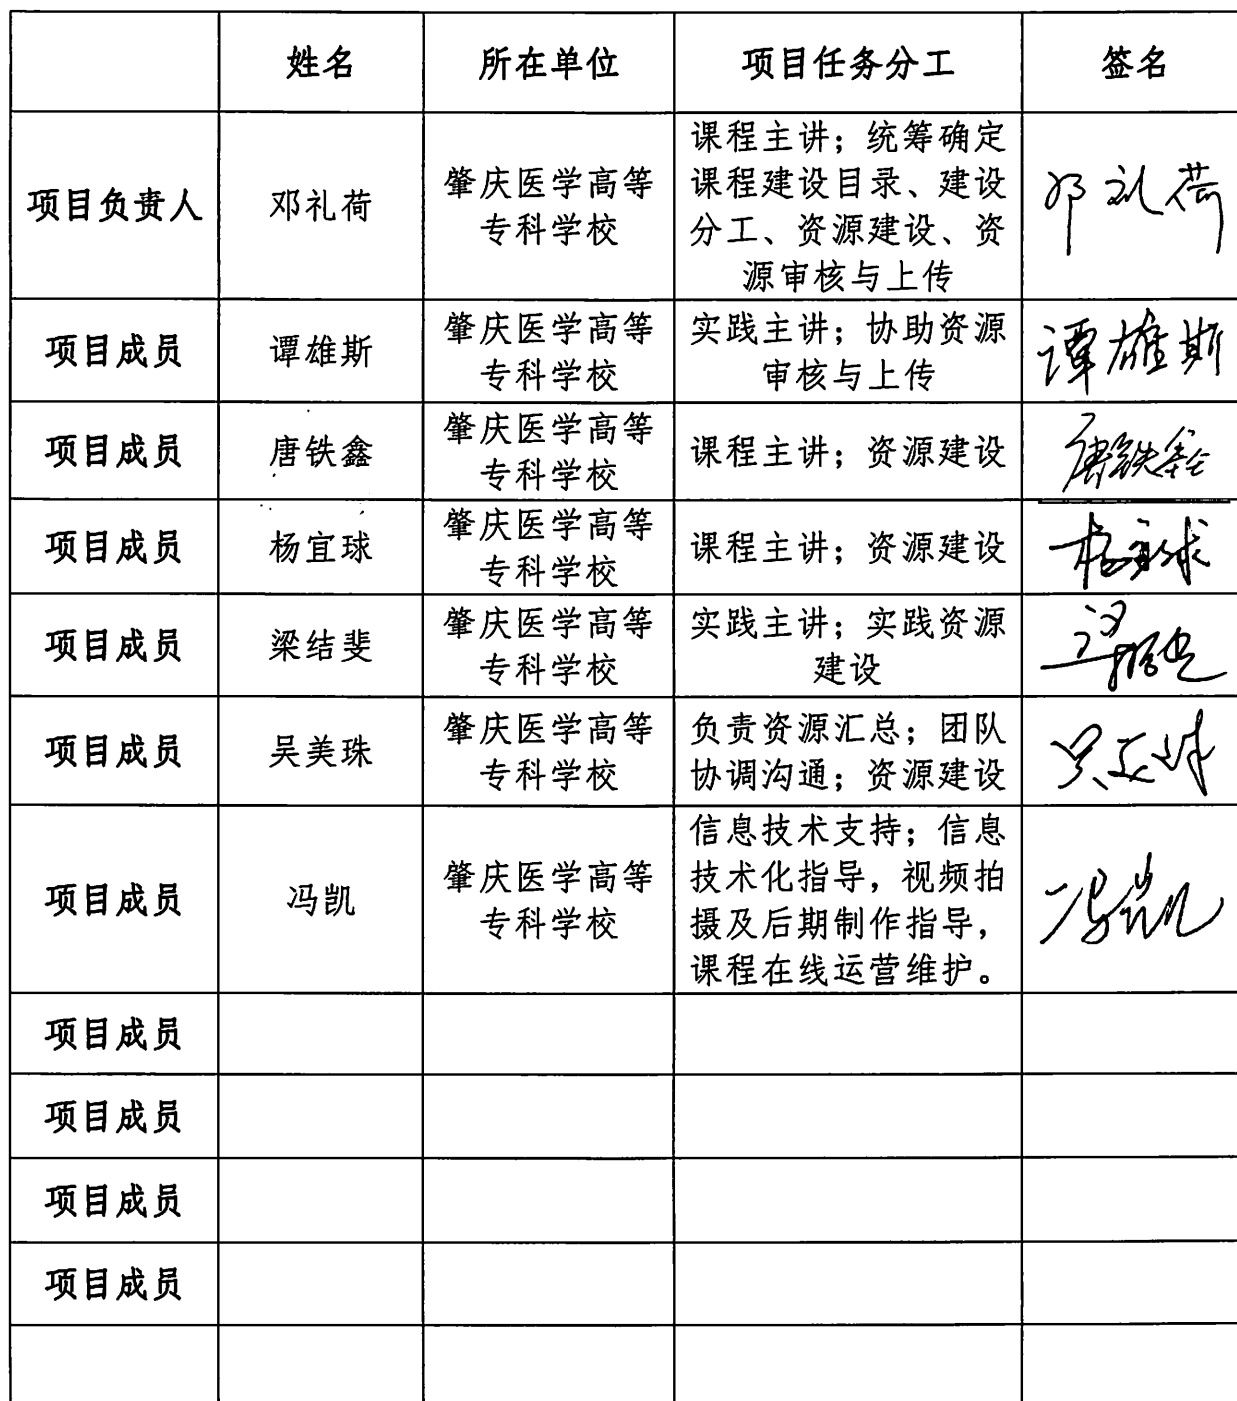 姓名 所在单位 项目任务分工 签名
项目负责人 邓礼荷
肇庆医学高等
专科学校
课程主讲；统筹确定
课程建设目录、建设
分工、资源建设、资
源审核与上传
邓礼荷
项目成员 谭雄斯
肇庆医学高等
专科学校
实践主讲；协助资源
审核与上传
谭雄斯
项目成员 唐铁鑫
肇庆医学高等
专科学校
课程主讲；资源建设
唐铁鑫
项目成员 杨宜球
肇庆医学高等
专科学校
课程主讲；资源建设
杨宜球
项目成员 梁结斐
肇庆医学高等
专科学校
实践主讲；实践资源
建设
项目成员 吴美珠
肇庆医学高等
专科学校
负责资源汇总；团队
协调沟通；资源建设
吴美珠
项目成员 冯凯
肇庆医学高等
专科学校
信息技术支持；信息
技术化指导，视频拍
摄及后期制作指导，
课程在线运营维护。
冯凯
项目成员
项目成员
项目成员
项目成员